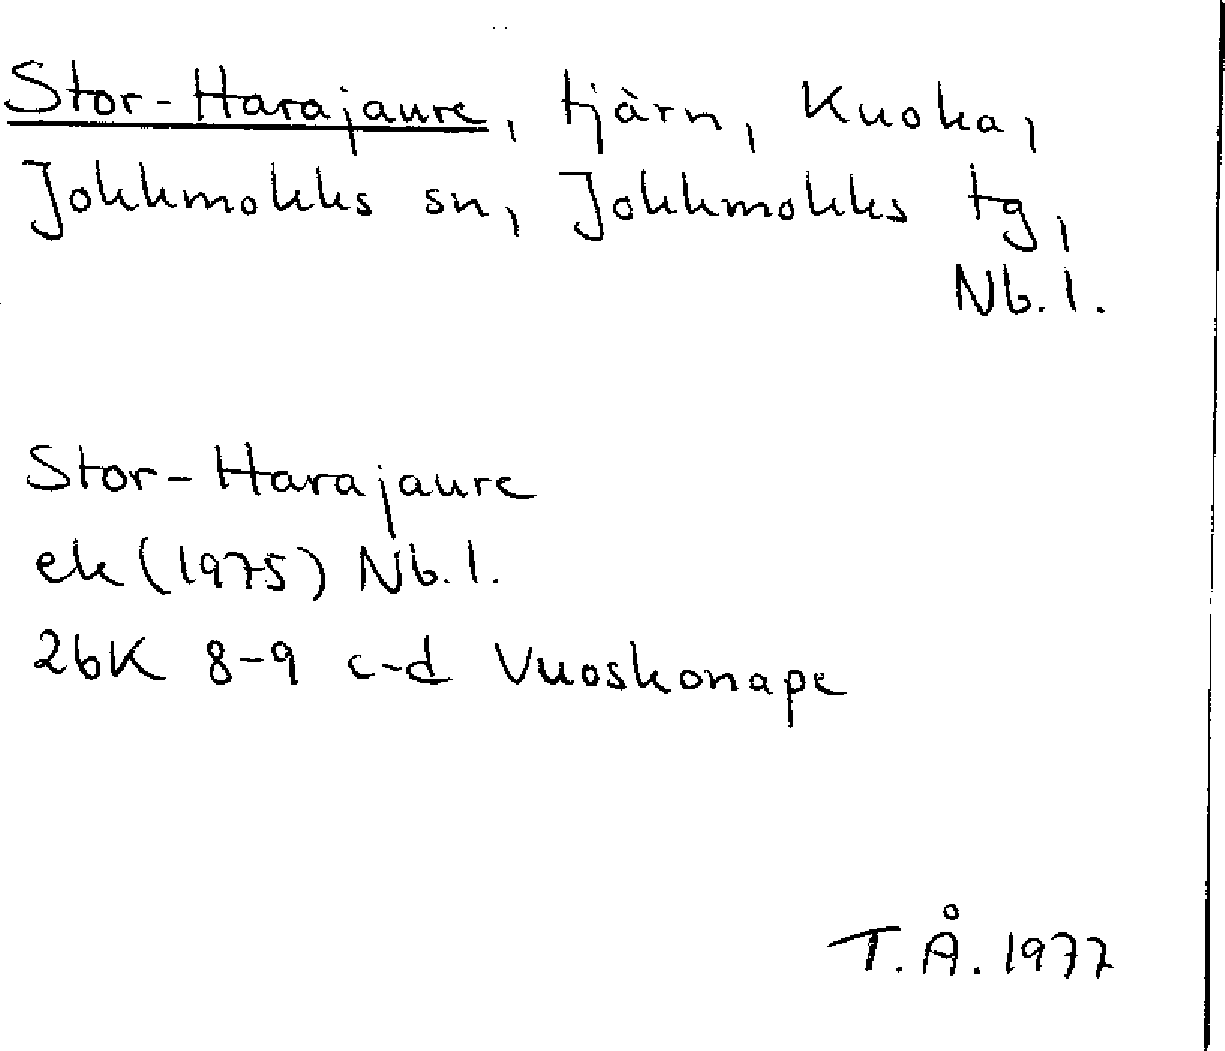 Stor-Harajaure, tjärn, Kuoka,
Jokkmokks sn, Jokkmokks tg,
Nb. l.
Stor-Harajaure
ek (1975) Nb. l.
26K 8-9 c-d Vuoskonape
T. Å. 1977